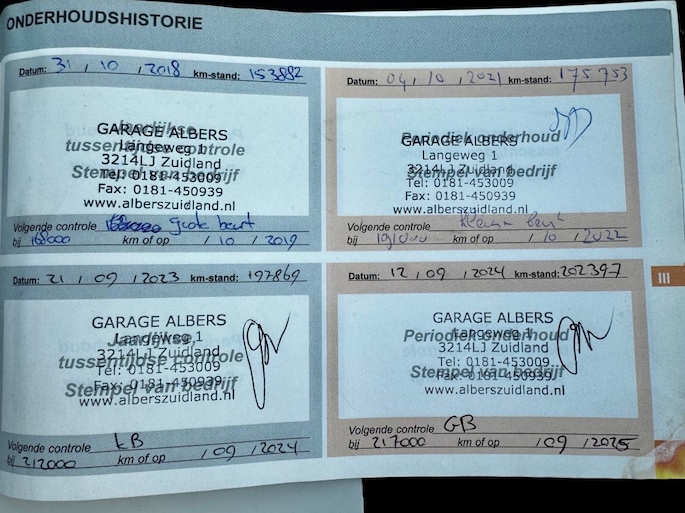 ONDERHOUDSHISTORIE
Datum: 31 / 10 / 2018 km-stand: 153882
GARAGE ALBERS
Jaarlijkse
tussentijdse controle
Langeweg 1
3214LJ Zuidland
Stempel van bedrijf
Tel: 0181-453009
Fax: 0181-450939
www.alberszuidland.nl
Volgende controle grote beurt
bij 168000 km of op / 10 / 2019
Datum: 04 / 10 / 2021 km-stand: 175753
Periodiek onderhoud
GARAGE ALBERS
Langeweg 1
3214LJ Zuidland
Stempel van bedrijf
Tel: 0181-453009
Fax: 0181-450939
www.alberszuidland.nl
Volgende controle kleine beurt
bij 191000 km of op / 10 / 2022
III
Datum: 21 / 09 / 2023 km-stand: 197869
GARAGE ALBERS
Jaarlijkse
Langeweg 1
3214LJ Zuidland
tussentijdse controle
Tel: 0181-453009
Fax: 0181-450939
Stempel van bedrijf
www.alberszuidland.nl
Volgende controle KB
bij 212000 km of op / 09 / 2024
Datum: 12 / 09 / 2024 km-stand: 202397
GARAGE ALBERS
Periodiek onderhoud
Langeweg 1
3214LJ Zuidland
Tel: 0181-453009
Stempel van bedrijf
Fax: 0181-450939
www.alberszuidland.nl
Volgende controle GB
bij 217000 km of op / 09 / 2025